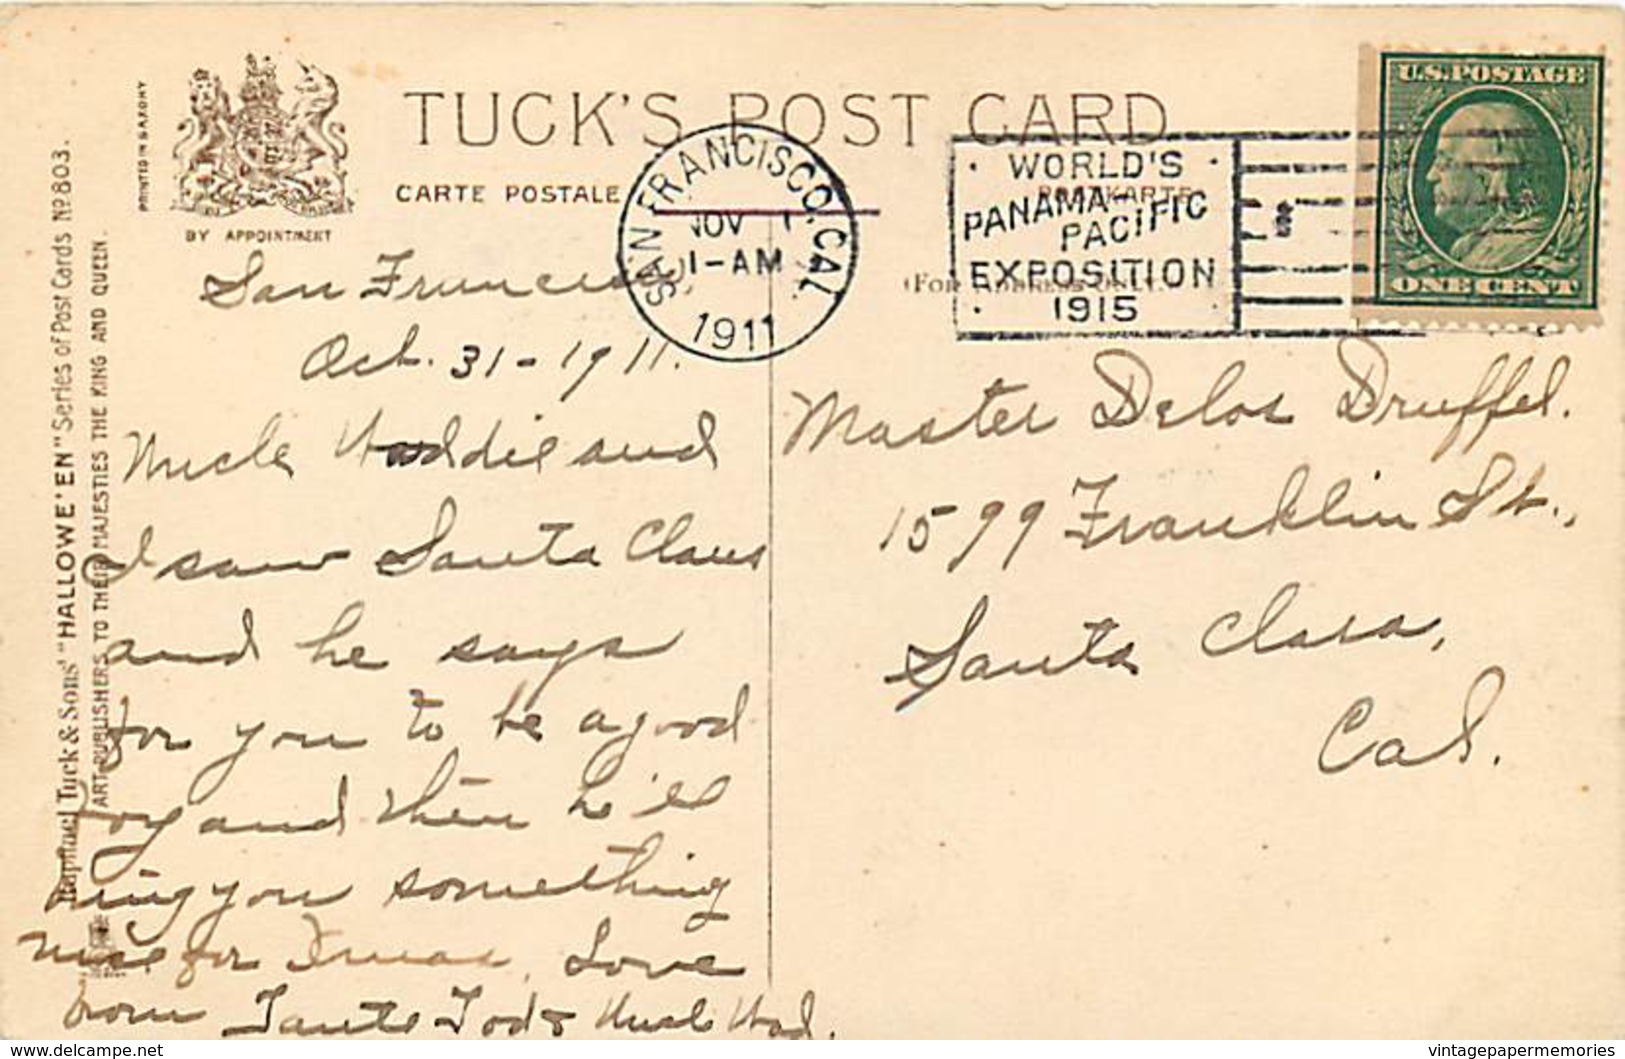 TUCK'S POST CARD
CARTE POSTALE
POSTKARTE
(FOR ADDRESS ONLY.)
BY APPOINTMENT
PRINTED IN SAXONY
Raphael Tuck & Sons' "HALLOWE'EN" Series of Post Cards No. 803.
ART PUBLISHERS TO THEIR MAJESTIES THE KING AND QUEEN.
SAN FRANCISCO, CAL.
NOV 1
1-AM
1911
WORLD'S
PANAMA-PACIFIC
EXPOSITION
1915
U.S.POSTAGE
ONE CENT
San Francisco
Oct. 31-1911.
Uncle Haddie and
I saw Santa Claus
and he says
for you to be a good
boy and then he'll
bring you something
nice for Xmas, Love
from Tante Tod & Uncle Had.
Master Delos Druffel.
1599 Franklin St.,
Santa Clara,
Cal.
www.delcampe.net
vintagepapermemories